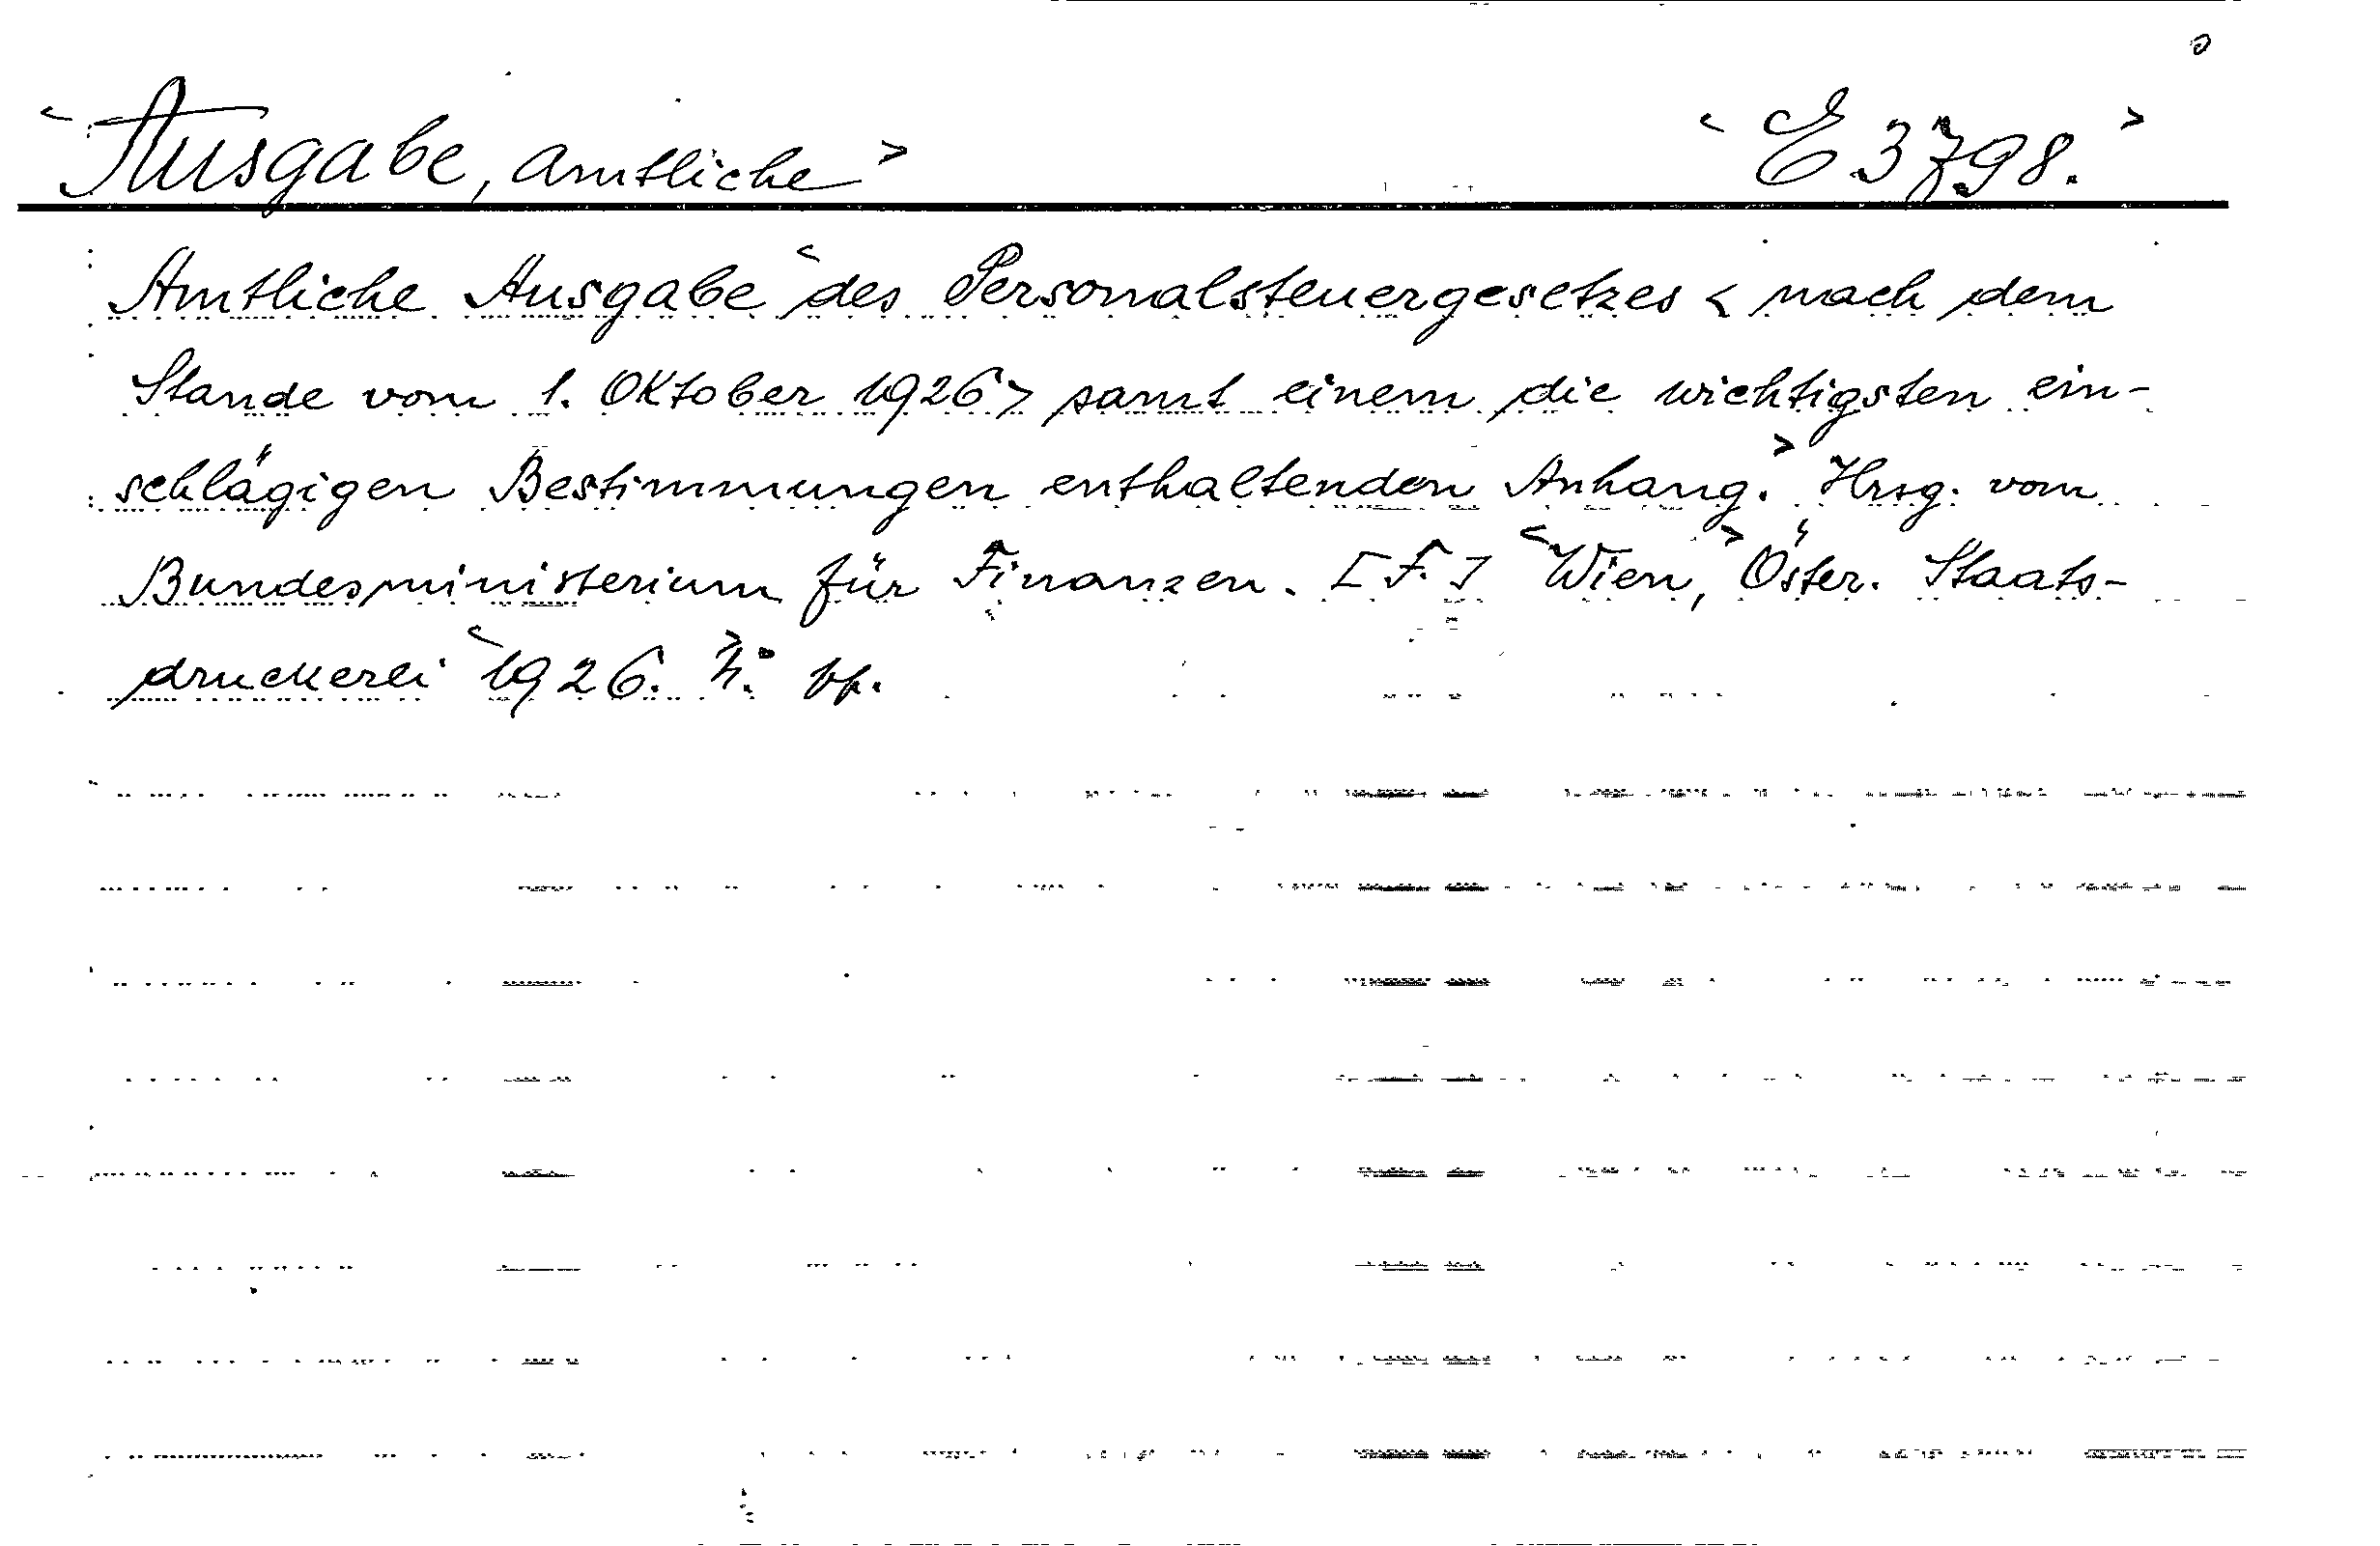 <Ausgabe, amtliche> <E 3798.>
Amtliche Ausgabe <des Personalsteuergesetzes < nach dem
Stande vom 1. Oktober 1926> samt einem die wichtigsten ein-
schlägigen Bestimmungen enthaltenden Anhang.> Hrsg. vom
Bundesministerium für Finanzen. [F.] <Wien,> Öster. Staats-
druckerei <1926.> 4: